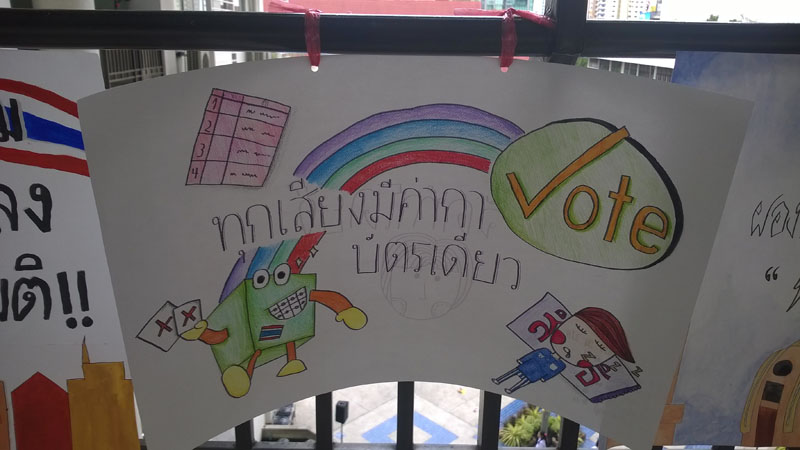 1
2
3
4
ทุกเสียงมีค่ากา
บัตรเดียว
Vote
ลง
!!
z z z